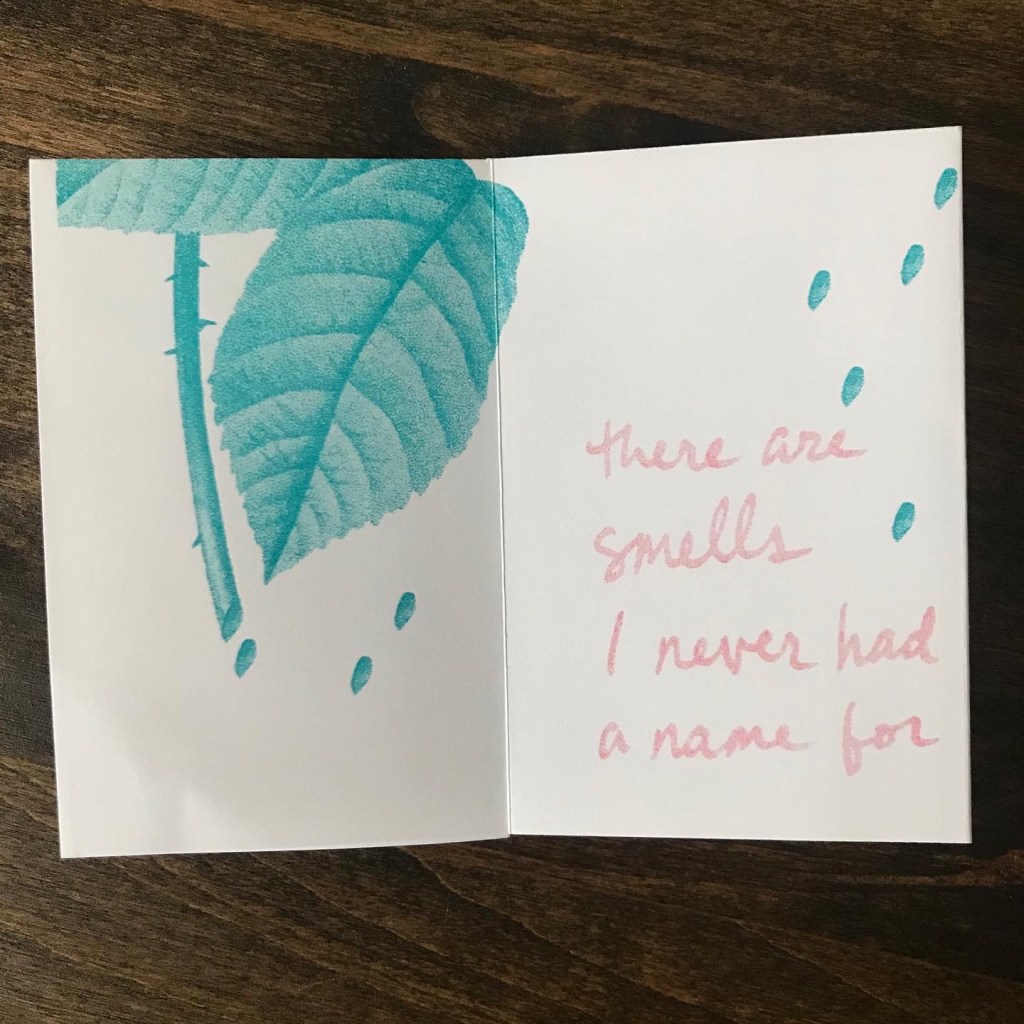 there are
smells
I never had
a name for